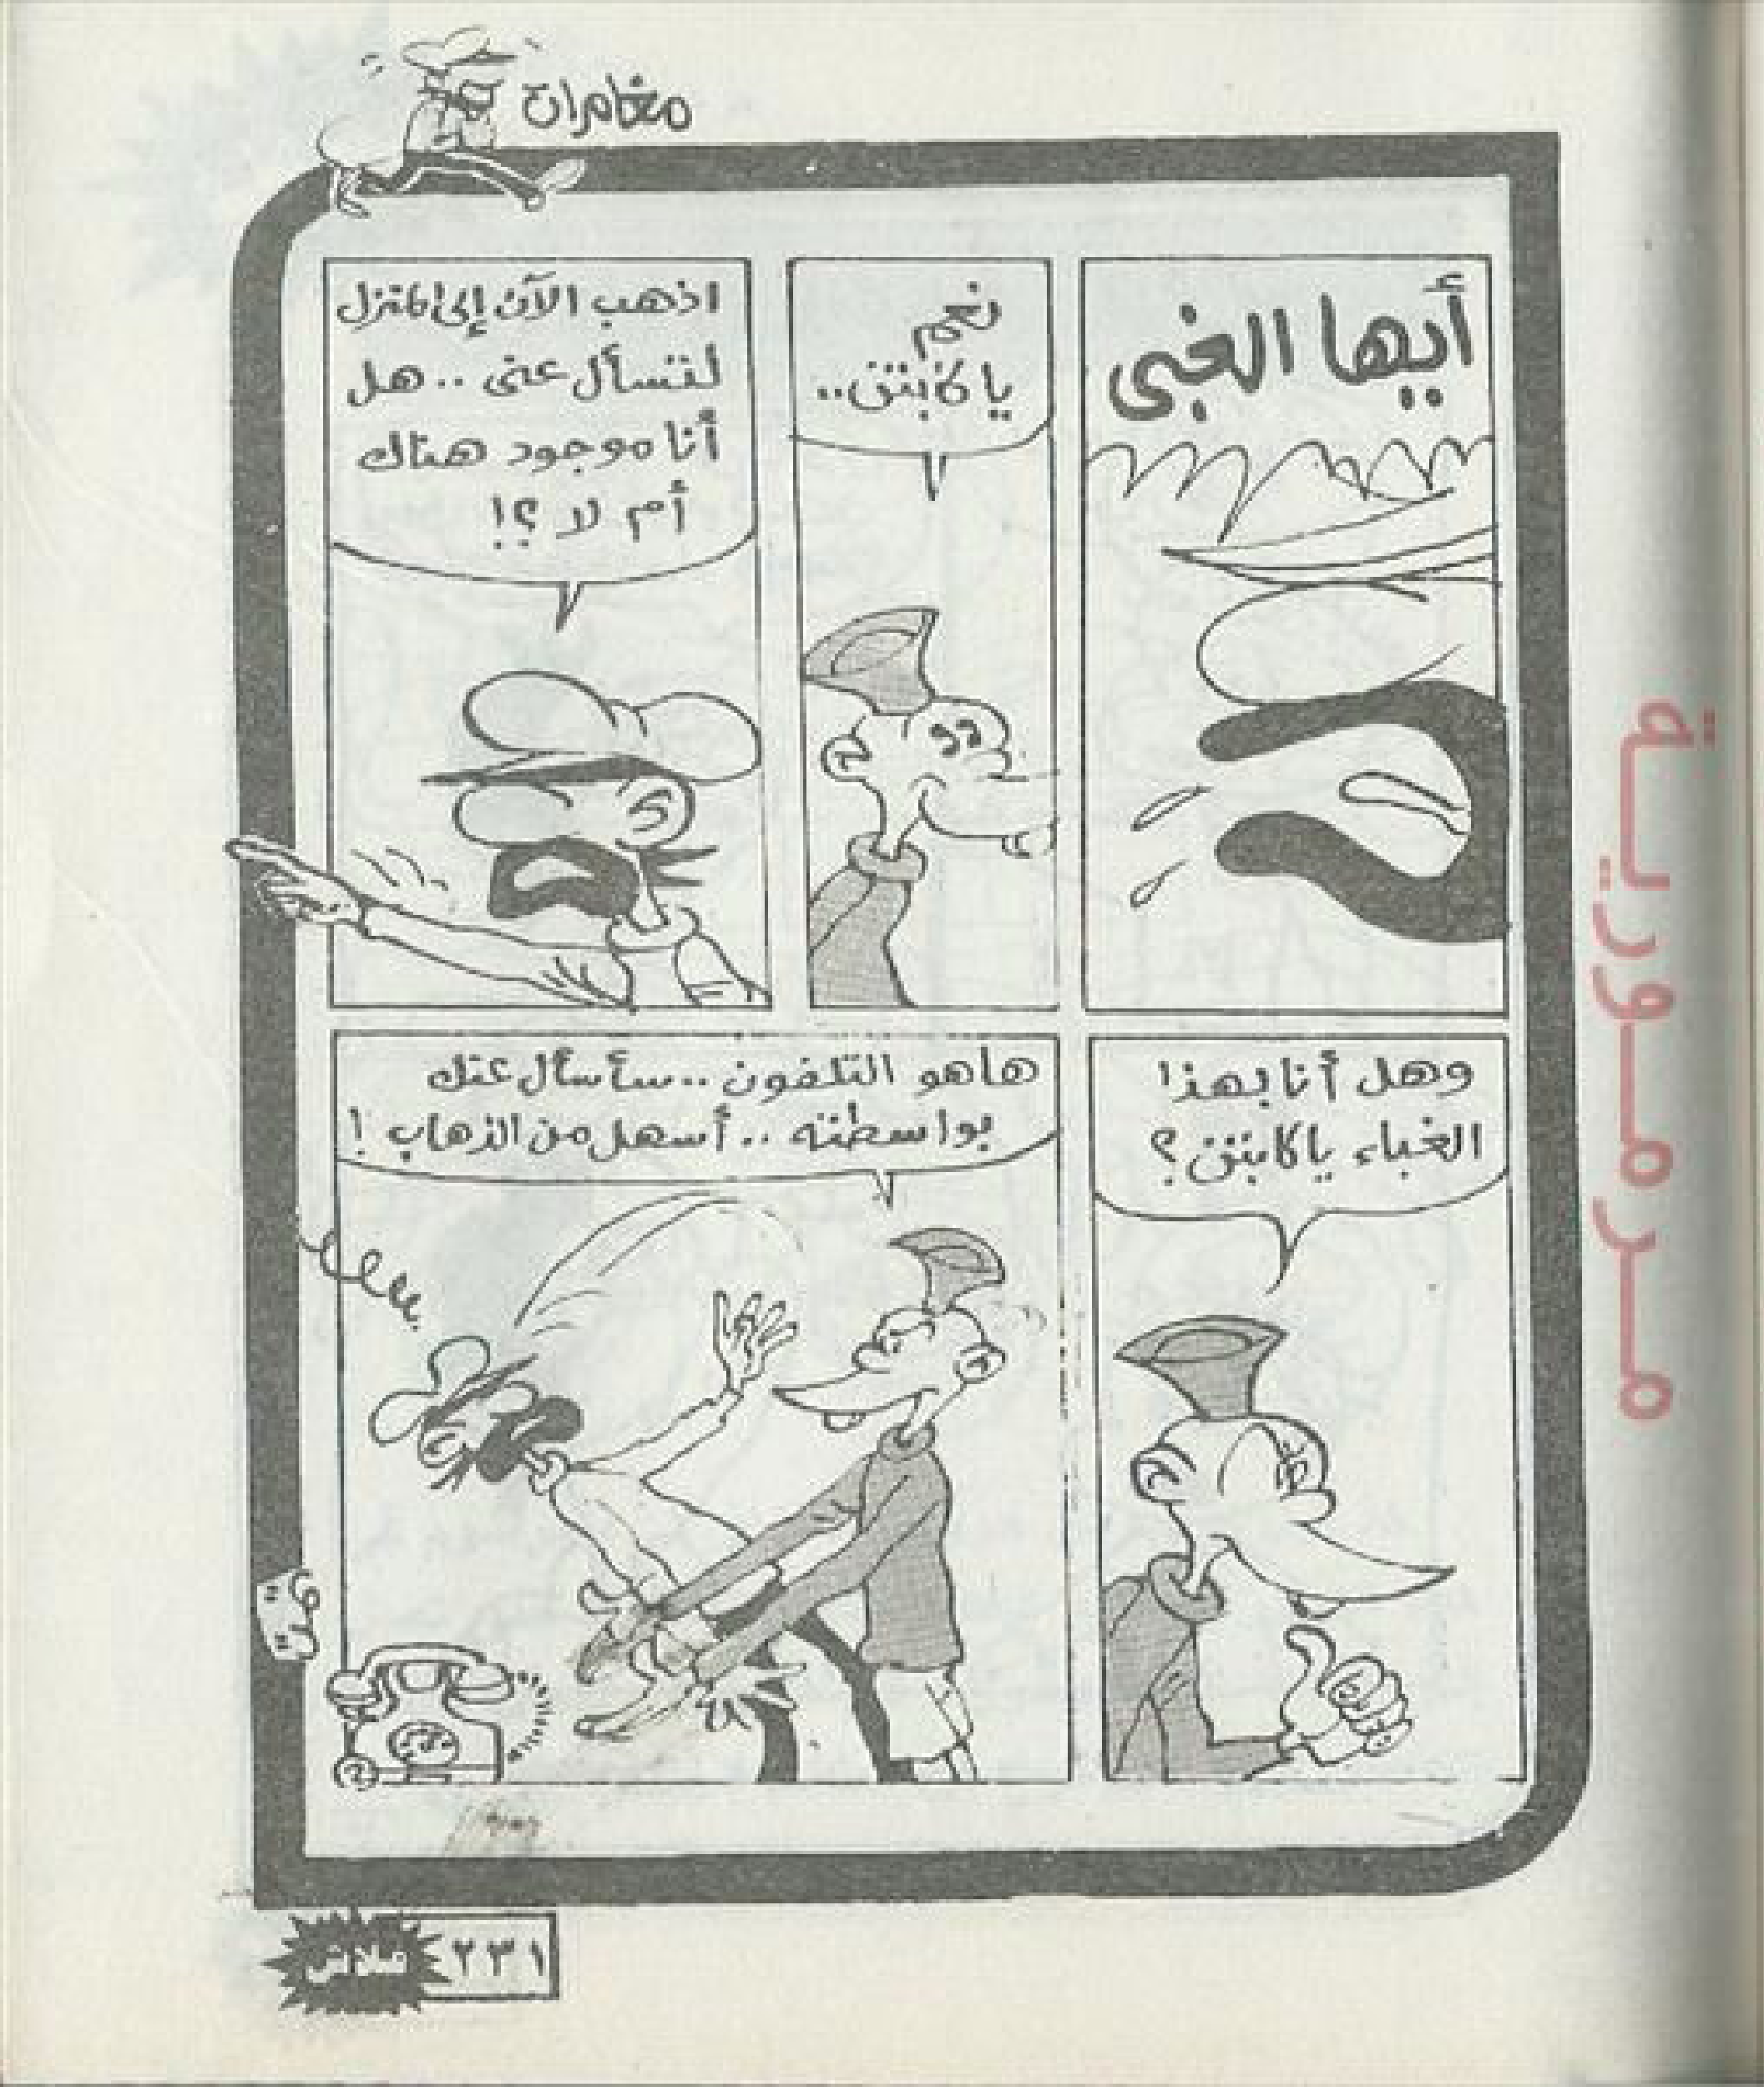 مغامرات
أيها الغبى
نعم
يا كابتن..
اذهب الآن إلى المنزل
لتسأل عنى .. هل
أنا موجود هناك
أم لا ؟!
وهل أنا بهذا
الغباء يا كابتن ؟
هاهو التلفون .. سأسأل عنك
بواسطته .. أسهل من الذهاب !
تمت
فلاش
٢٣١
مرمورية